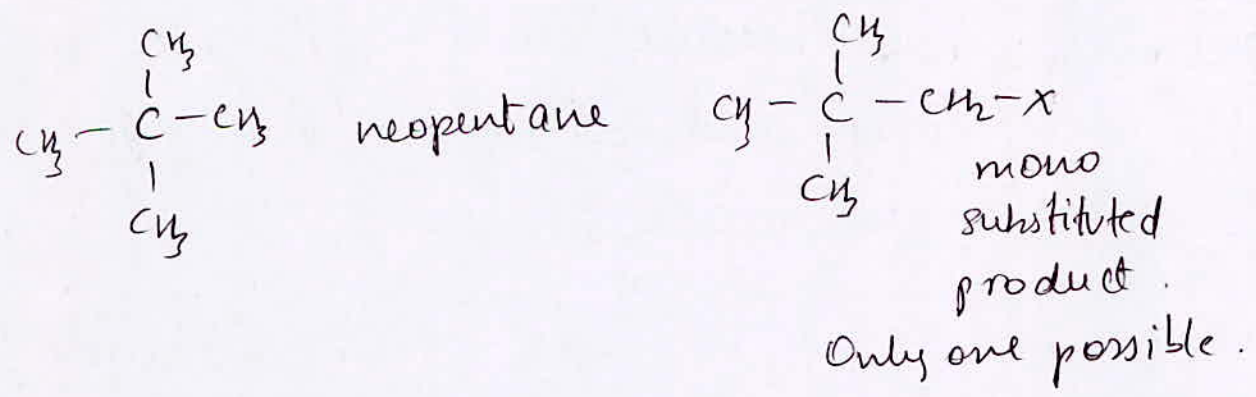 CH3
CH3 - C - CH3 neopentane
CH3
CH3
CH3 - C - CH2 - X
CH3
mono
substituted
product.
Only one possible.